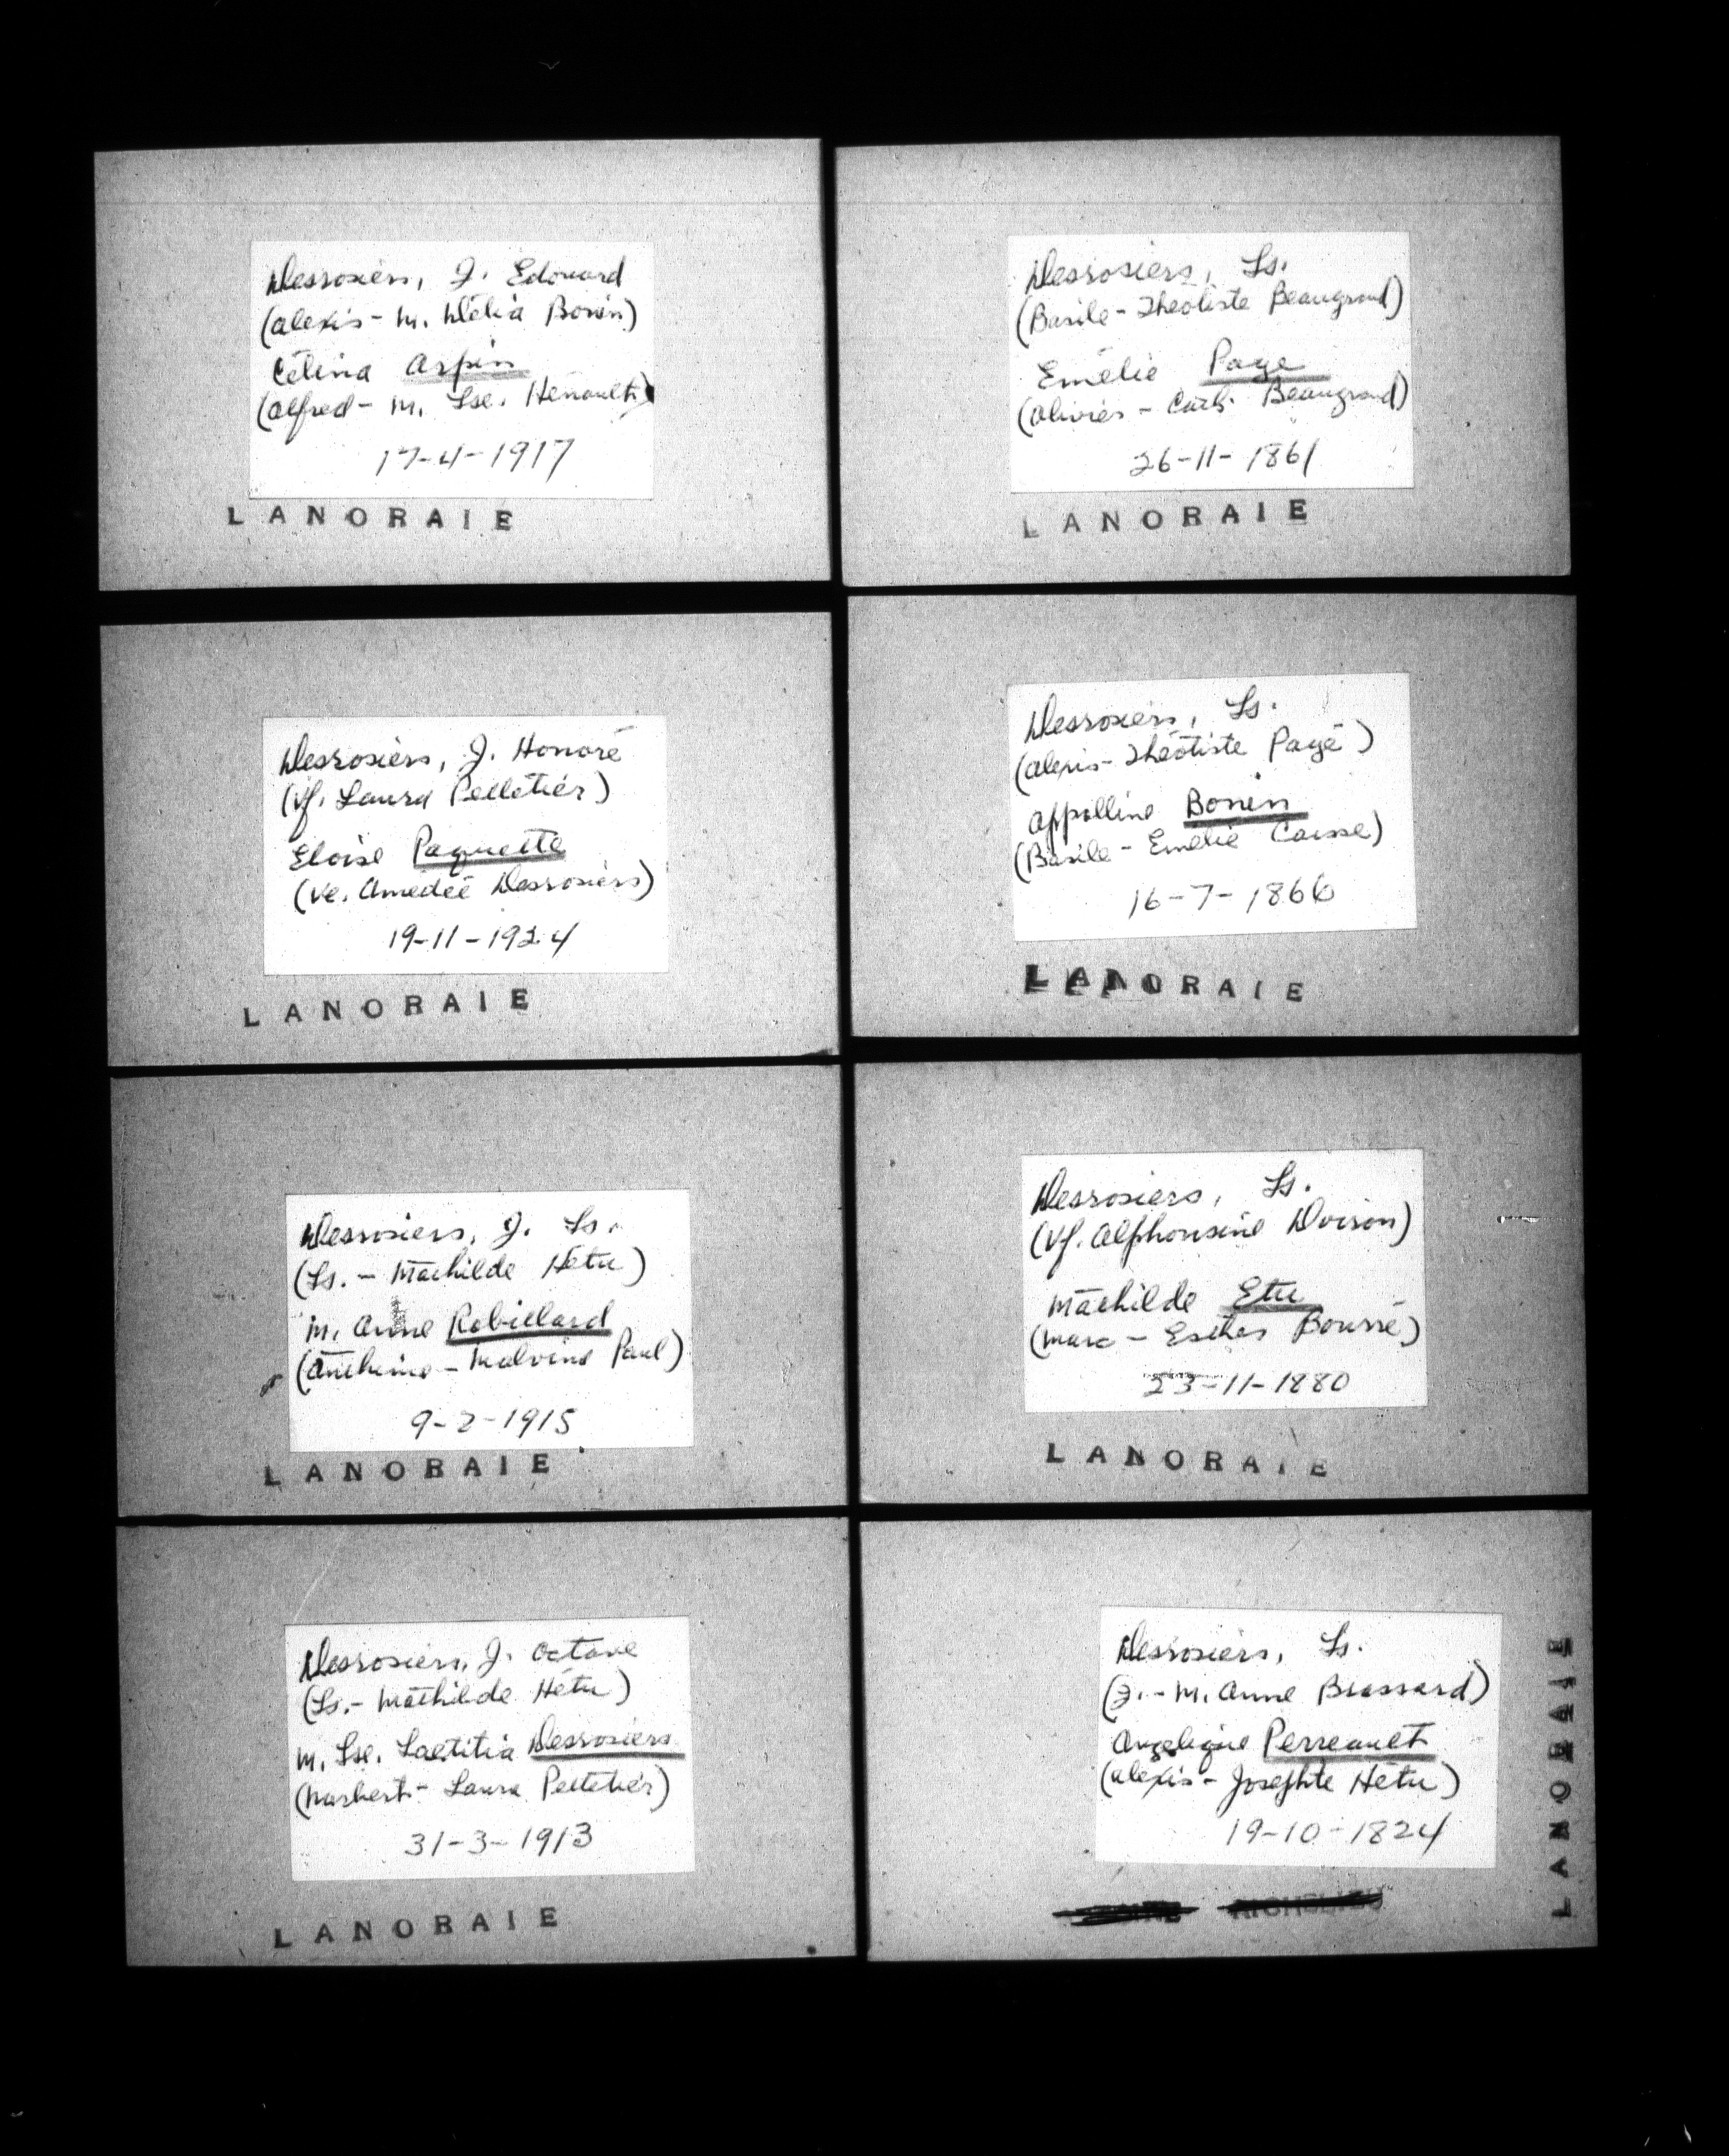 Desrosiers, J. Edouard
(Alexis - M. Délia Bonin)
Célina Arpin
(Alfred - M. Lse. Hénault)
17-4-1917
LANORAIE
Desrosiers, J. Honoré
(Vf. Laura Pelletier)
Eloïse Paquette
(Ve. Amedée Desrosiers)
19-11-1924
LANORAIE
Desrosiers, J. Ls.
(Ls. - Mathilde Hétu)
M. Anne Robillard
(Anthime - Malvina Paul)
9-2-1915
LANORAIE
Desrosiers, J. Octave
(Ls. - Mathilde Hétu)
M. Lse. Laetitia Desrosiers
(Norbert - Laura Pelletier)
31-3-1913
LANORAIE
Desrosiers, Ls.
(Basile - Théotiste Beaugrand)
Emélie Page
(Olivier - Cath. Beaugrand)
26-11-1861
LANORAIE
Desrosiers, Ls.
(Alexis - Théotiste Pagé)
Appolline Bonin
(Basile - Emélie Caisse)
16-7-1866
LANORAIE
Desrosiers, Ls.
(Vf. Alphonsine Doiron)
Mathilde Etu
(Marc - Esther Bourré)
23-11-1880
LANORAIE
Desrosiers, Ls.
(J. - M. Anne Brassard)
Angelique Perreault
(Alexis - Josephte Hétu)
19-10-1824
RICHELIEU
LANORAIE